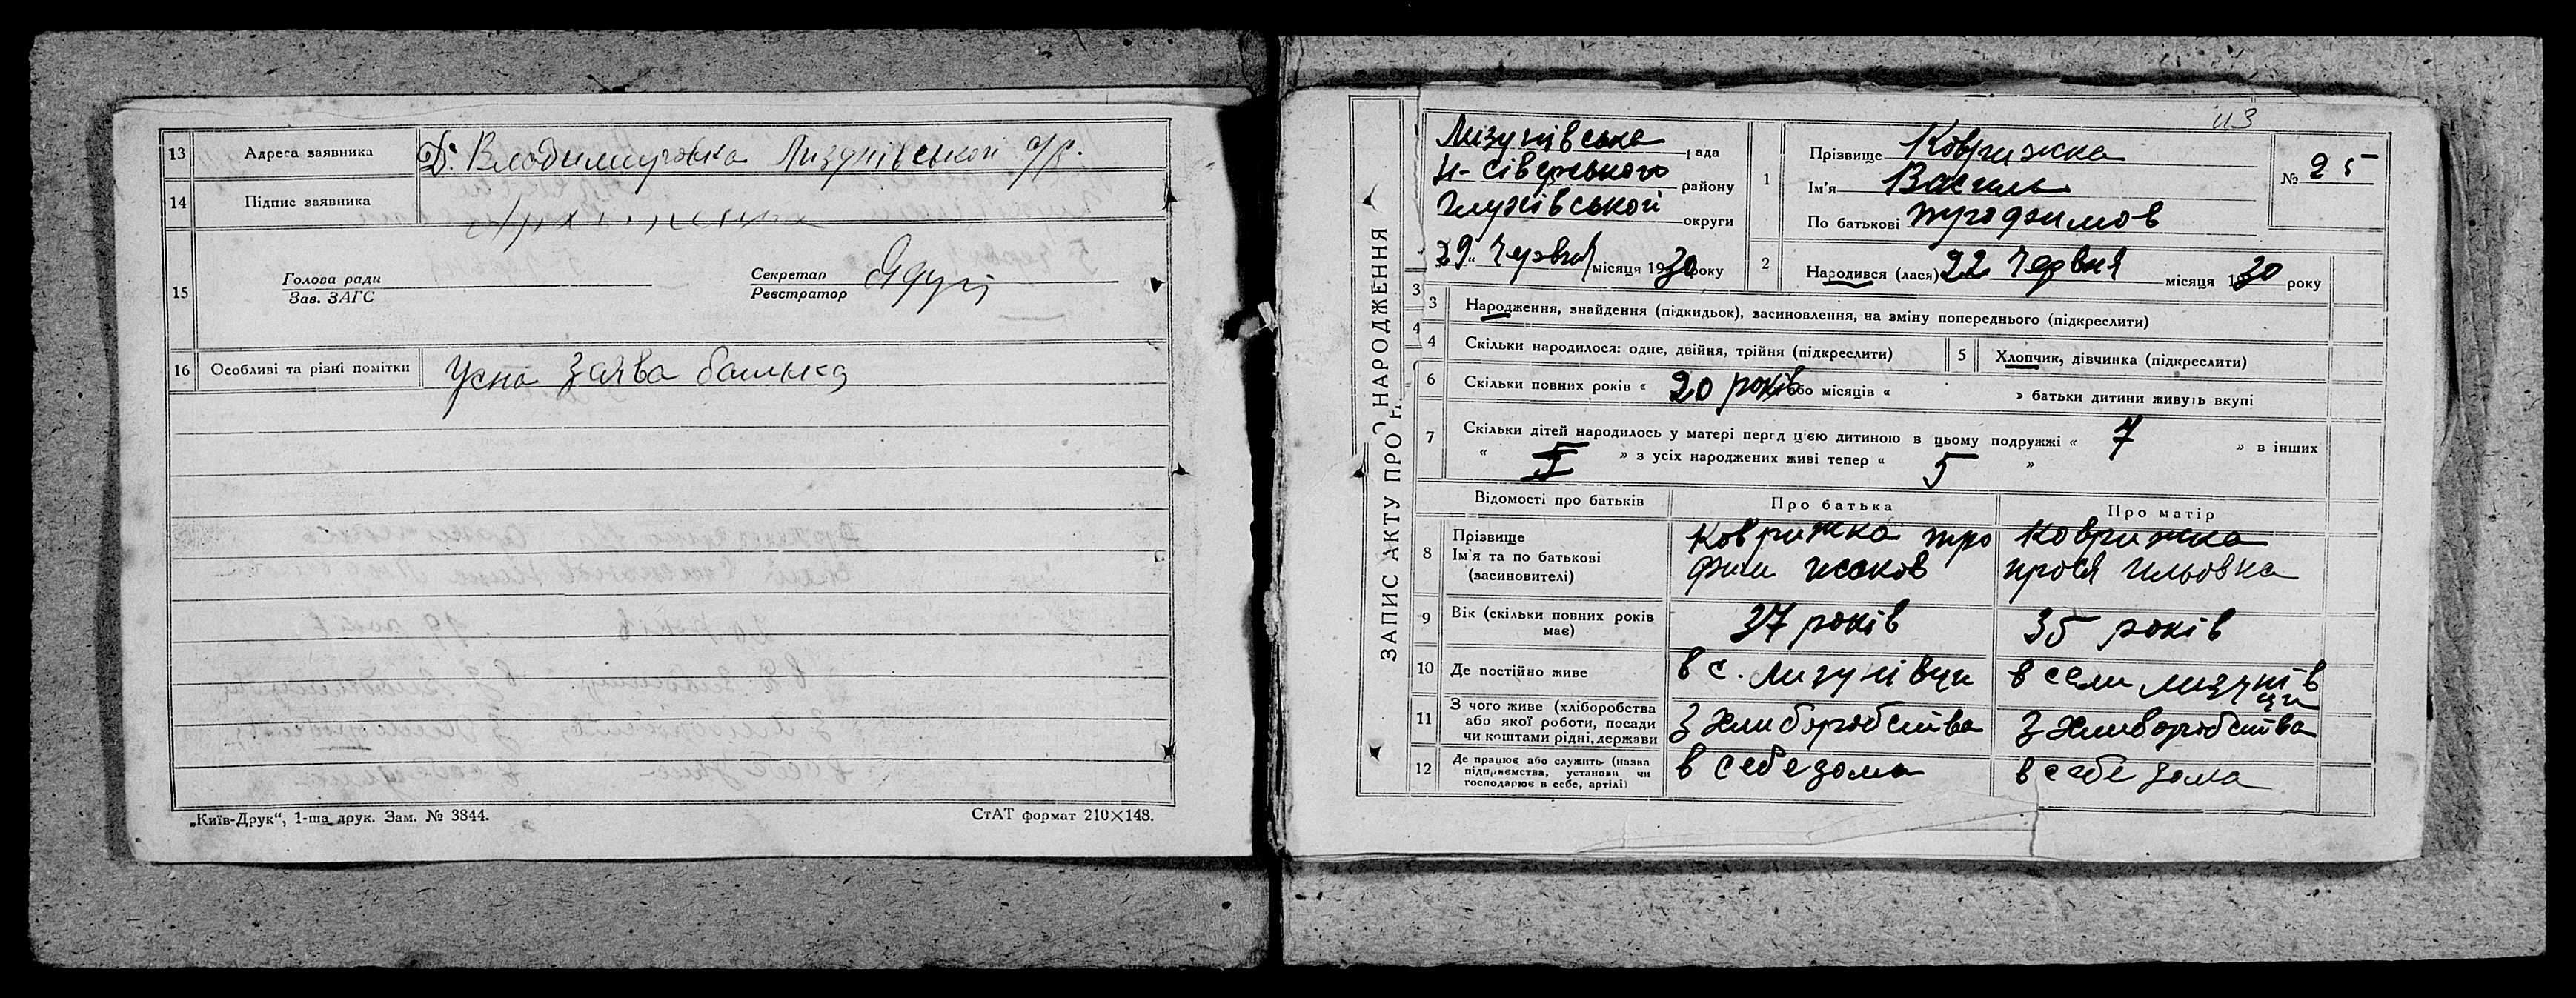 13 Адреса заявника Д. Владимировка Лизунівської с/р.
14 Підпис заявника
15 Голова ради
Зав. ЗАГС
Секретар
Реєстратор
16 Особливі та різні помітки Усна заява батька
„Київ-Друк“, 1-ша друк. Зам. № 3844. СтАТ формат 210×148.
113
ЗАПИС АКТУ ПРО НАРОДЖЕННЯ
Лизунівська рада
Н-Сіверського району
Глухівської округи
29 „ Червня місяця 1930 року
1 Прізвище Коврижка
Ім'я Василь
По батькові Трофимов
№ 25
2 Народився (лася) 22 Червня місяця 1930 року
3 Народження, знайдення (підкидьок), засиновлення, на зміну попереднього (підкреслити)
4 Скільки народилося: одне, двійня, трійня (підкреслити) 5 Хлопчик, дівчинка (підкреслити)
6 Скільки повних років « 20 років або місяців « » батьки дитини живуть вкупі
7 Скільки дітей народилось у матері перед цією дитиною в цьому подружжі « 7 » в інших
« » з усіх народжених живі тепер « 5 »
Відомості про батьків Про батька Про матір
8 Прізвище
Ім'я та по батькові
(засиновителі)
Коврижка Тро
фим Исаков
Коврижка
Прося Ильовна
9 Вік (скільки повних років має) 37 років 35 років
10 Де постійно живе в с. Лизунівци в сели Лизунів
ци
11 З чого живе (хліборобства
або якої роботи, посади
чи коштами рідні, держави
З Хлиборобства З Хлиборобства
12 Де працює або служить (назва
підприємства, установи чи
господарює в себе, артілі)
в себе дома в себе дома